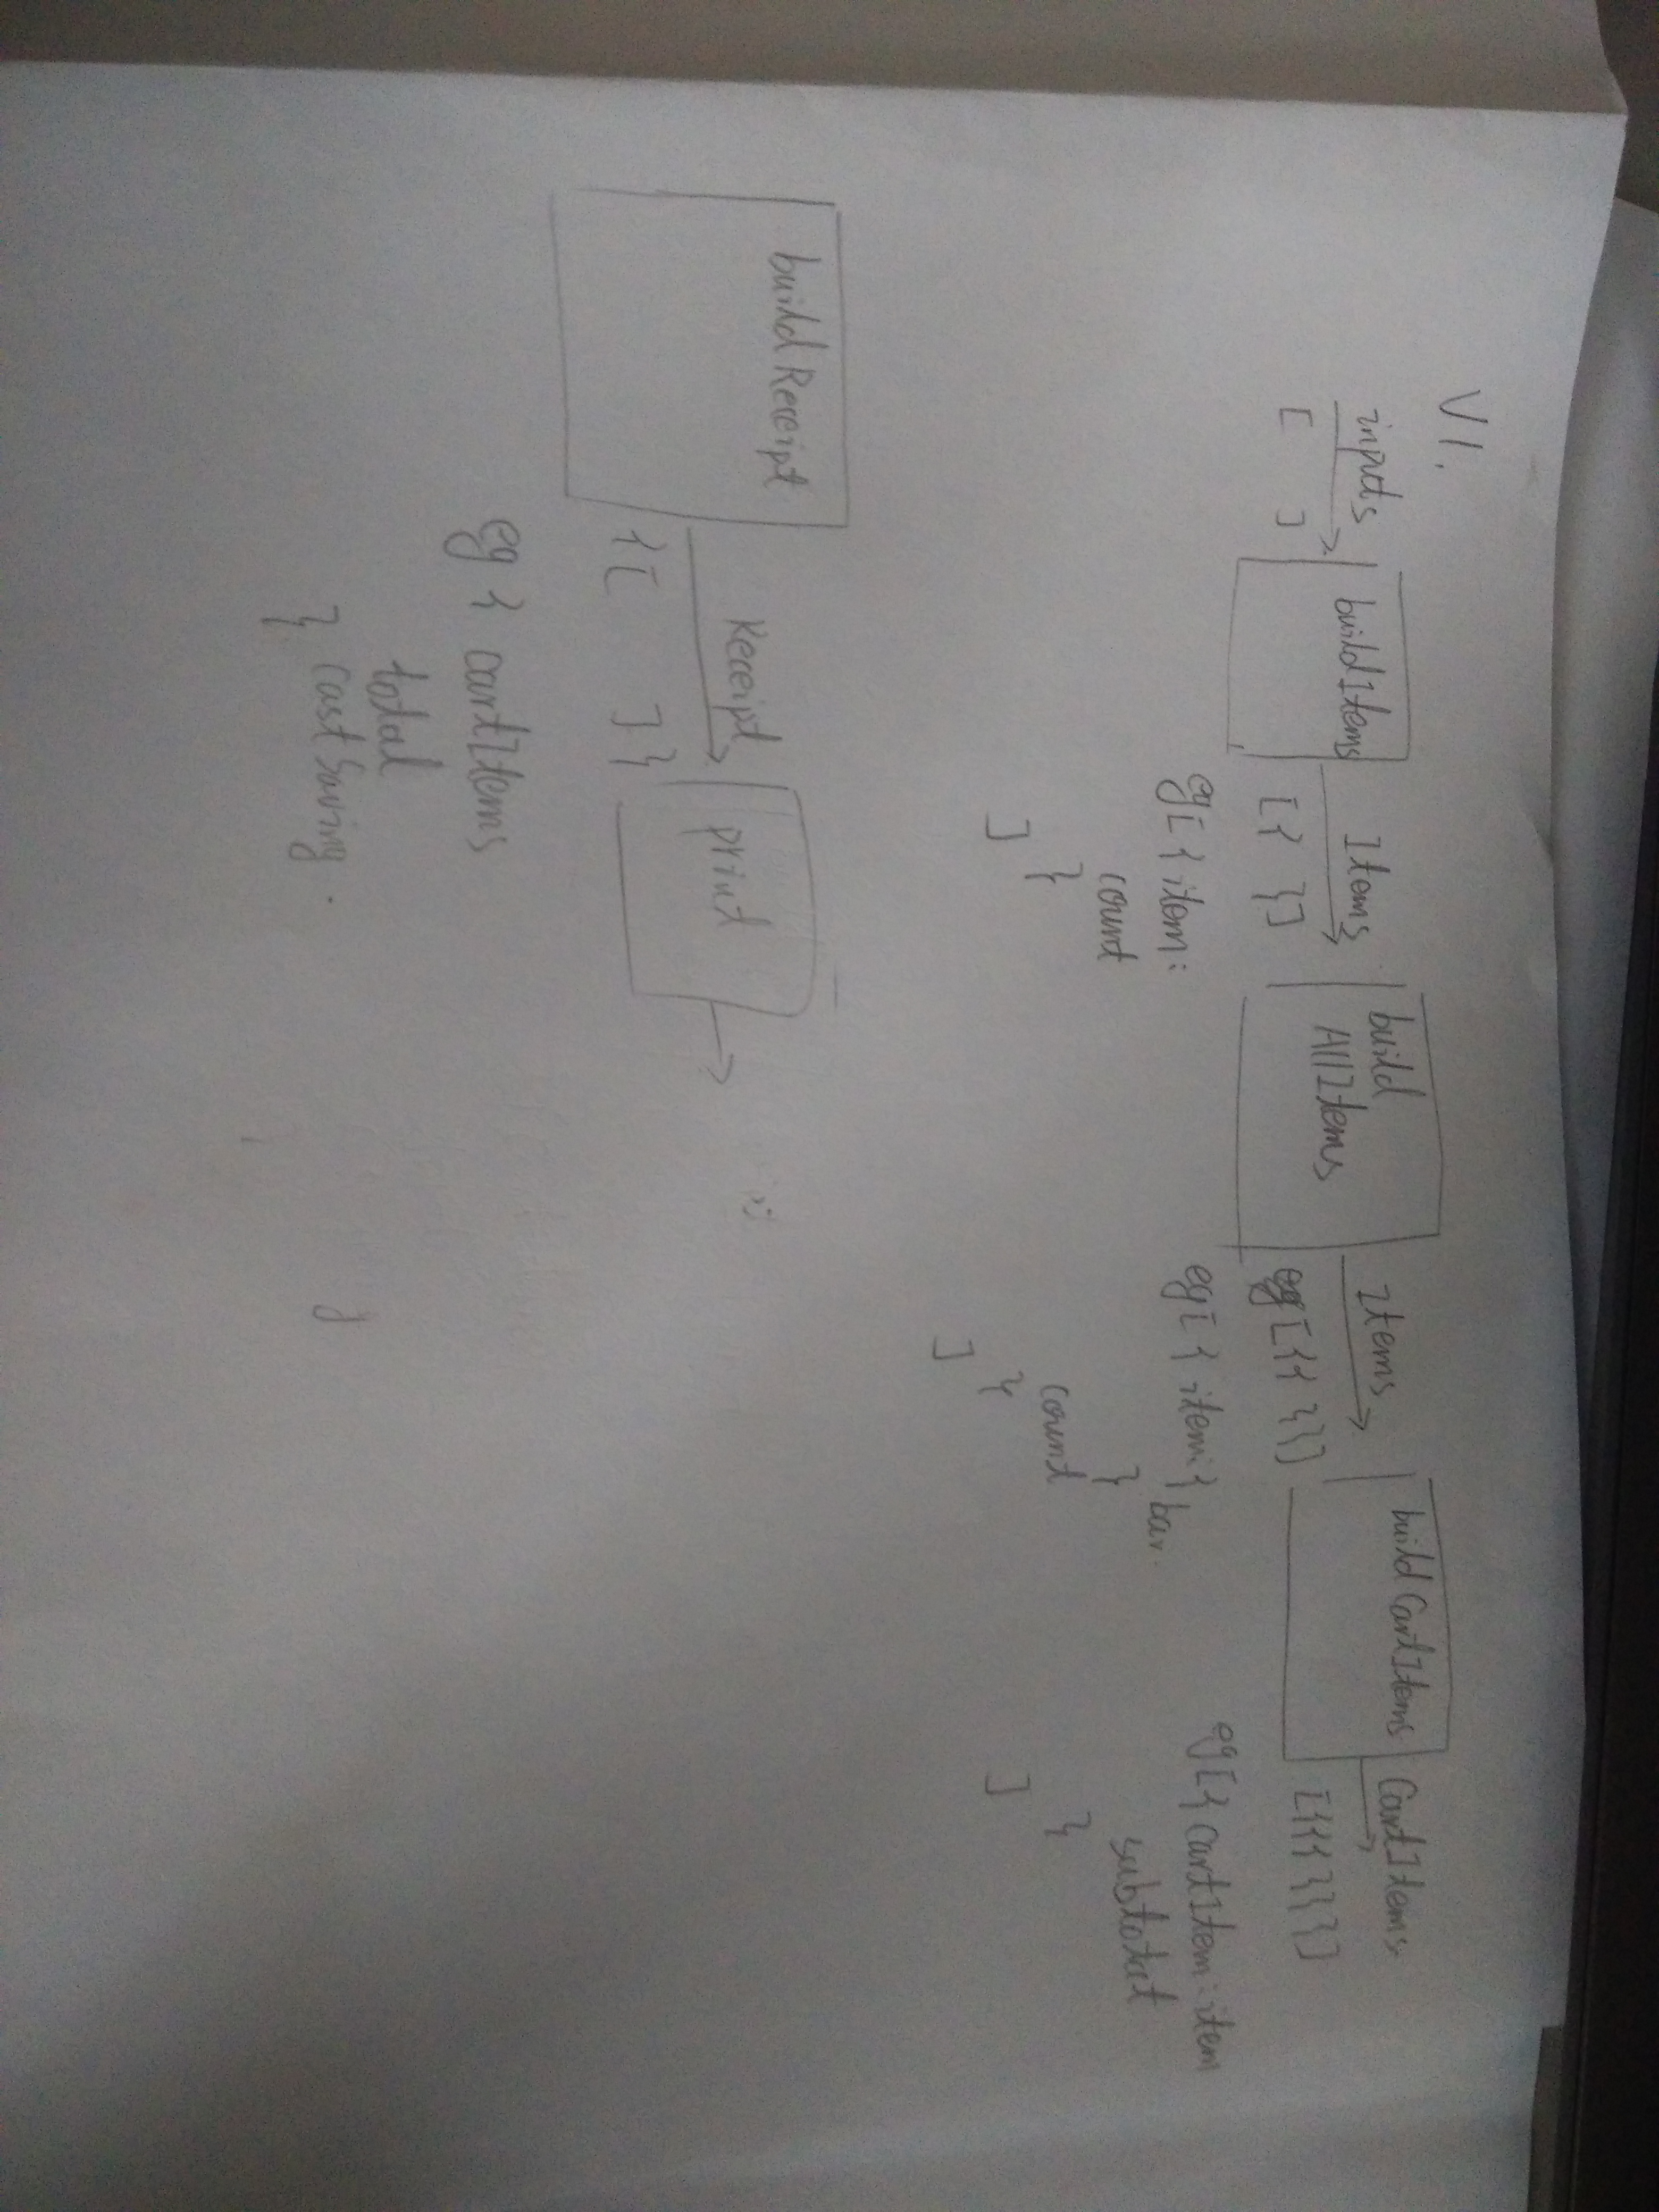 V1.
inputs
[ ]
buildItems
Items
[{ }]
eg[{item:
count
}
]
build
AllItems
Items
[{{ }}]
eg[{item:{
bar.
}
count
}
]
buildCartItems
CartItems
[{{{ }}}]
eg[{cartItem:item
subtotal
}
]
buildReceipt
Receipt
{[ ]}
print
eg { cartItems
total
cast Saving.
}